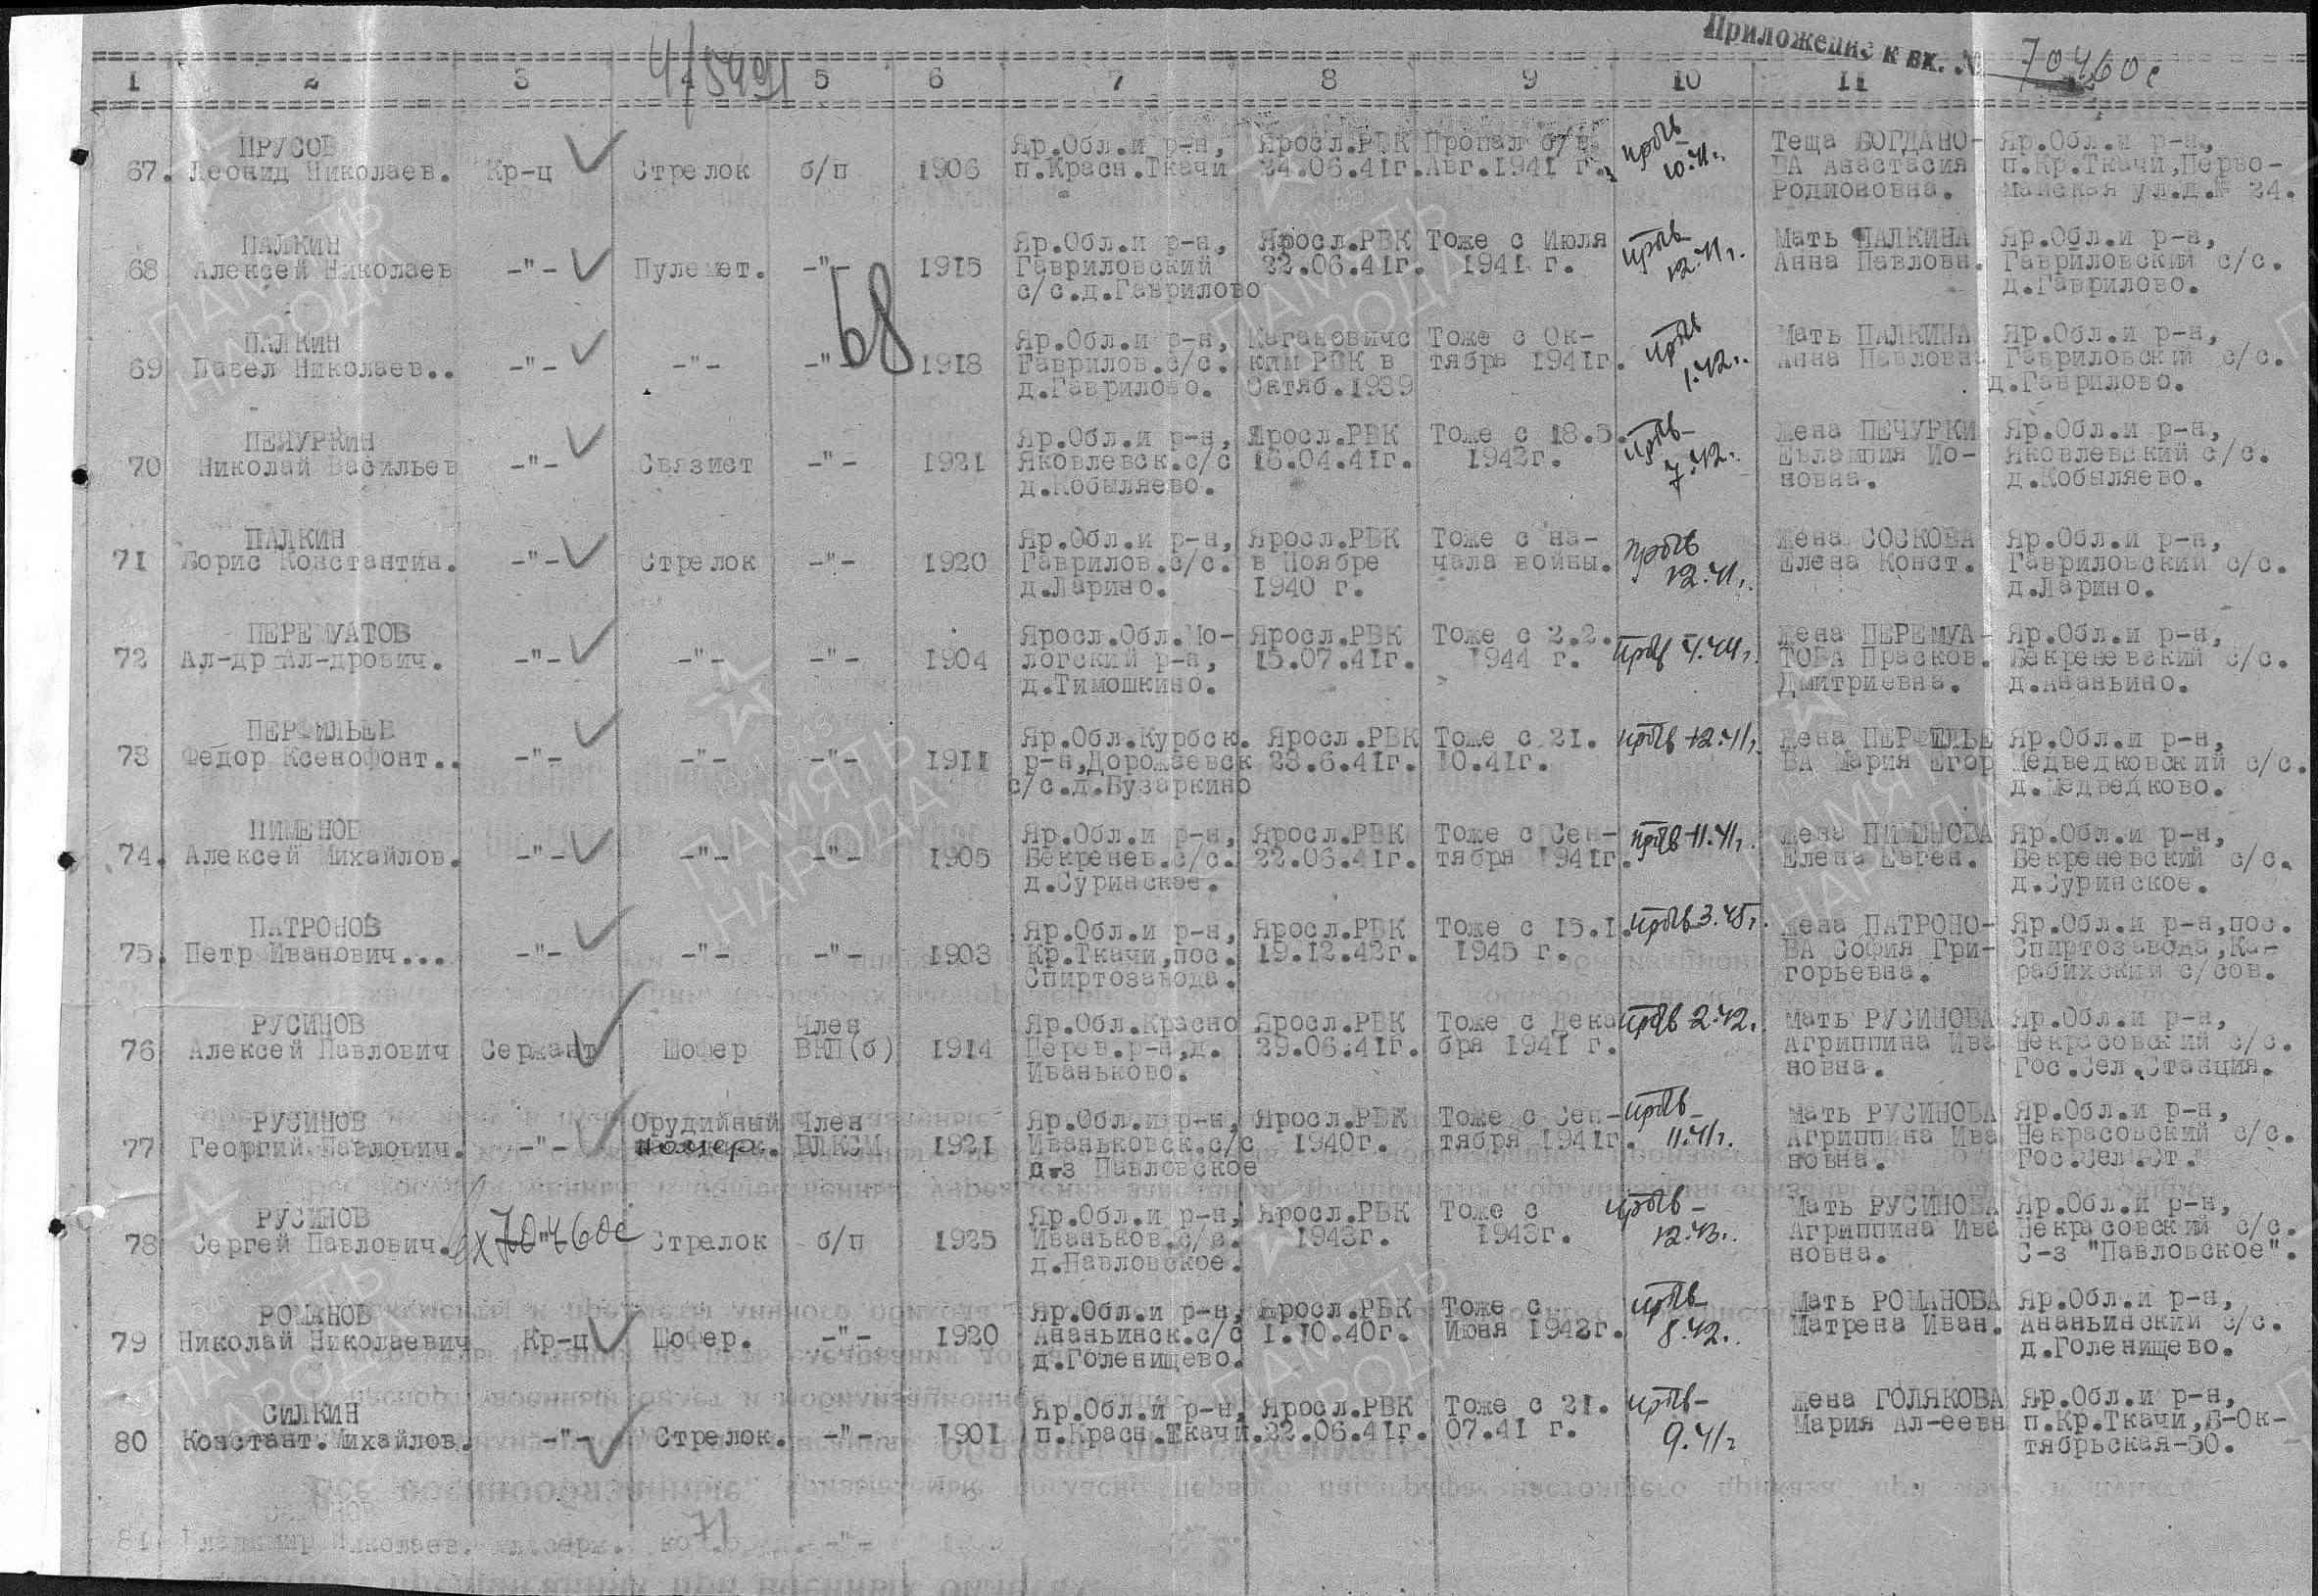 Приложение к вх. № 70460с
4/5491
1 2 3 4 5 6 7 8 9 10 11
ПРУСОВ Яр.Обл.и р-н, Яросл.РВК Пропал б/в Теща БОГДАНО- Яр.Обл.и р-н,
67. Леонид Николаев. Кр-ц Стрелок б/п 1906 п.Красн.Ткачи 24.06.41г. Авг.1941 г. 10.41г. ВА Анастасия п.Кр.Ткачи,Перво-
Родионовна. майская ул.д.№ 24.
ПАЛКИН Яр.Обл.и р-н, Яросл.РВК Тоже с Июля Мать ПАЛКИНА Яр.Обл.и р-н,
68 Алексей Николаев -"- Пулемет. -"- 1915 Гавриловский 22.06.41г. 1941 г. 12.41г. Анна Павловн. Гавриловский с/с.
с/с.д.Гаврилово д.Гаврилово.
68
ПАЛКИН Яр.Обл.и р-н, Кагановичс Тоже с Ок- Мать ПАЛКИНА Яр.Обл.и р-н,
69 Павел Николаев.. -"- -"- -"- 1918 Гаврилов.с/с. ким РВК в тября 1941г. 1.42г. Анна Павловн. Гавриловский с/с.
д.Гаврилово. Октяб.1939 д.Гаврилово.
ПЕЧУРКИН Яр.Обл.и р-н, Яросл.РВК Тоже с 18.5. Жена ПЕЧУРКИ Яр.Обл.и р-н,
70 Николай Васильев -"- Связист -"- 1921 Яковлевск.с/с 16.04.41г. 1942г. 7.42г. Евлампия Ио- Яковлевский с/с.
д.Кобыляево. новна. д.Кобыляево.
ПАЛКИН Яр.Обл.и р-н, Яросл.РВК Тоже с на- Жена СОСКОВА Яр.Обл.и р-н,
71 Борис Константин. -"- Стрелок -"- 1920 Гаврилов.с/с. в Ноябре чала войны. 12.41г. Елена Конст. Гавриловский с/с.
д.Ларино. 1940 г. д.Ларино.
ПЕРЕМУАТОВ Яросл.Обл.Мо- Яросл.РВК Тоже с 2.2. Жена ПЕРЕМУА- Яр.Обл.и р-н,
72 Ал-др Ал-дрович. -"- -"- -"- 1904 логский р-н, 15.07.41г. 1944 г. 4.44г. ТОВА Прасков. Бекреневский с/с.
д.Тимошкино. Дмитриевна. д.Ананьино.
ПЕРФИЛЬЕВ Яр.Обл.Курбск. Яросл.РВК Тоже с 21. Жена ПЕРФИЛЬЕ Яр.Обл.и р-н,
73 Федор Ксенофонт.. -"- -"- -"- 1911 р-н,Дорожаевск 23.6.41г. 10.41г. 12.41г. ВА Мария Егор Медведковский с/с.
с/с.д.Бузаркино д.Медведково.
ПИМЕНОВ Яр.Обл.и р-н, Яросл.РВК Тоже с Сен- Жена ПИМЕНОВА Яр.Обл.и р-н,
74. Алексей Михайлов. -"- -"- -"- 1905 Бекренев.с/с. 22.06.41г. тября 1941г. 11.41г. Елена Евген. Бекреневский с/с.
д.Суринское. д.Суринское.
ПАТРОНОВ Яр.Обл.и р-н, Яросл.РВК Тоже с 15.1. Жена ПАТРОНО- Яр.Обл.и р-н,пос.
75. Петр Иванович... -"- -"- -"- 1903 Кр.Ткачи,пос. 19.12.42г. 1945 г. 3.45г. ВА София Гри- Спиртозавода,Ка-
Спиртозавода. горьевна. рабихский с/сов.
РУСИНОВ Член Яр.Обл.Красно Яросл.РВК Тоже с Дека Мать РУСИНОВА Яр.Обл.и р-н,
76 Алексей Павлович Сержант Шофер ВКП(б) 1914 Перев.р-н,д. 29.06.41г. бря 1941 г. 2.42г. Агриппина Ива Некрасовский с/с.
Иваньково. новна. Гос.Сел.Станция.
РУСИНОВ Орудийный Член Яр.Обл.и р-н, Яросл.РВК Тоже с Сен- Мать РУСИНОВА Яр.Обл.и р-н,
77 Георгий Павлович. -"- номер. ВЛКСМ 1921 Иваньковск.с/с 1940г. тября 1941г. 11.41г. Агриппина Ива Некрасовский с/с.
с-з Павловское новна. Гос.Сел.Ст.
РУСИНОВ Яр.Обл.и р-н, Яросл.РВК Тоже с Мать РУСИНОВА Яр.Обл.и р-н,
78 Сергей Павлович. вх 70460с Стрелок б/п 1925 Иваньков.с/с. 1943г. 1943г. 12.43г. Агриппина Ива Некрасовский с/с.
д.Павловское. новна. С-з "Павловское".
РОМАНОВ Яр.Обл.и р-н, Яросл.РВК Тоже с Мать РОМАНОВА Яр.Обл.и р-н,
79 Николай Николаевич Кр-ц Шофер. -"- 1920 Ананьинск.с/с 1.10.40г. Июня 1942г. 8.42г. Матрена Иван. Ананьинский с/с.
д.Голенищево. д.Голенищево.
СИЛКИН Яр.Обл.и р-н, Яросл.РВК Тоже с 21. Жена ГОЛЯКОВА Яр.Обл.и р-н,
80 Констант.Михайлов. -"- Стрелок. -"- 1901 п.Красн.Ткачи. 22.06.41г. 07.41 г. 9.41г. Мария Ал-еевн п.Кр.Ткачи,Б-Ок-
тябрьская-50.
71
81 Владимир Николаев. -"-
ПАМЯТЬ НАРОДА